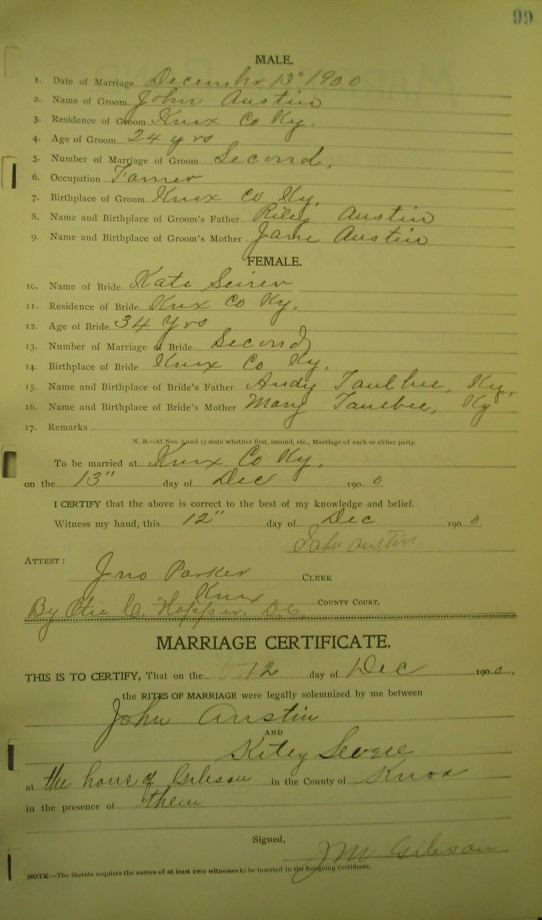 99
MALE.
1. Date of Marriage December 13" 1900
2. Name of Groom John Austin
3. Residence of Groom Knox Co Ky.
4. Age of Groom 24 yrs
5. Number of Marriage of Groom Second.
6. Occupation Farmer
7. Birthplace of Groom Knox Co Ky.
8. Name and Birthplace of Groom's Father Riley Austin
9. Name and Birthplace of Groom's Mother Jane Austin
FEMALE.
10. Name of Bride Kate
11. Residence of Bride Knox Co Ky.
12. Age of Bride 34 yrs
13. Number of Marriage of Bride Second
14. Birthplace of Bride Knox Co Ky.
15. Name and Birthplace of Bride's Father Andy Taulbee, Ky.
16. Name and Birthplace of Bride's Mother Mary Taulbee, Ky
17. Remarks
N. B.—At Nos. 5 and 13 state whether first, second, etc., Marriage of each or either party.
To be married at Knox Co Ky.
on the 13" day of Dec 1900
I CERTIFY that the above is correct to the best of my knowledge and belief.
Witness my hand, this 12" day of Dec 1900.
John Austin
ATTEST:
Jno Parker CLERK
Knox COUNTY COURT.
By Otie C. Hopper, D.C.
MARRIAGE CERTIFICATE.
THIS IS TO CERTIFY, That on the 12 day of Dec 1900.
the RITES OF MARRIAGE were legally solemnized by me between
John Austin
AND
Kitey
at the hous of Gibson in the County of Knox
in the presence of them
Signed,
J M Gibson
NOTE.—The Statute requires the names of at least two witnesses to be inserted in the foregoing Certificate.